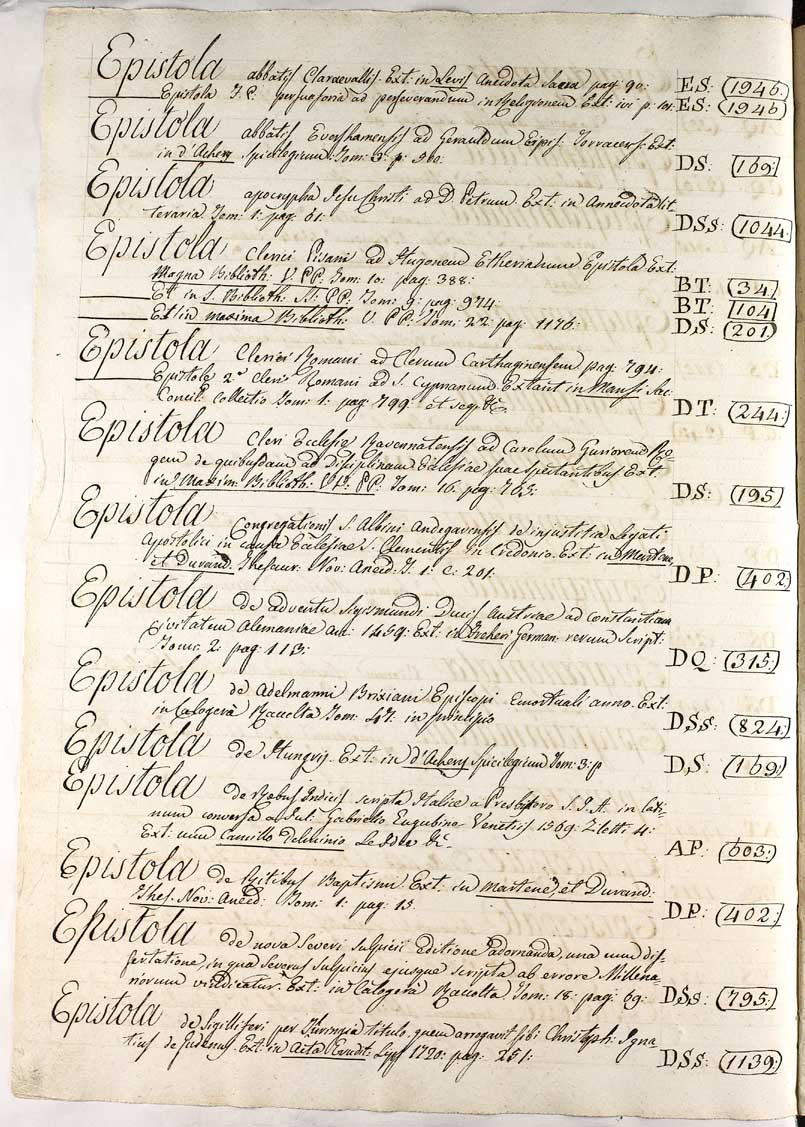 Epistola abbatis Claraevallis. Ext: in Levis Anecdota Sacra pag: 90: ES: (1946.)
Epistola J. P. persuasoria ad perseverandum in Religionem. Ext: ivi p: 101. ES: (1946)
Epistola abbatis Evershamensis ad Geraudum Ext:
in d'Achery Spicilegium: Tom: 3: p: DS: (169:)
Epistola apocrypha Jesu Christi ad D. Petrum. Ext: in Annecdota lit
teraria. Tom: 1: pag: 61: DSs: (1044.)
Epistola Clerici Pisani ad Hugonem Etherianum Epistola Ext:
Magna Biblioth: V. PP: Tom: 10: pag: 388: BT: (34)
Ext: in S. Biblioth: SS: PP: Tom: 9: pag: 974: BT: (104)
Ext: in maxima Biblioth: V. PP: Tom: 22: pag: 1176: DS: (201)
Epistola Cleri Romani ad Clerum Carthaginensem pag: 794:
Epistola 2.a cleri Romani ad S. Cyprianum Extant in Mansi: Sac:
Concil: Collectio Tom: 1: pag: 799 et seq: &c. DT: (244:)
Epistola Cleri Ecclesie Ravennatensis ad Carolum Re
gem de quibusdam ad Disiplinam Ecclesiae suae spectantibus Ext:
in Maxim: Biblioth: VV: PP: Tom: 16: pag: 763: DS: (195)
Epistola Congregationis S. Albini Andegavensis de injustitia Legati
Apostolici in causa Ecclesiae S. Clementis in Credonio. Ext: in Martene
et Durand: Thesaur: Nov: Aned: T. 1: c: 201: DP: (402:)
Epistola de adventu Sigismundi Ducis Austriae ad Constantiam
Civitatem Alemaniae an: 1459: Ext: in Freheri German: rerum Script:
Tomo: 2: pag: 113: DQ: (315:)
Epistola de Adelmanni Brixiani Episcopi Emortuali anno. Ext:
in Calogerà Raccolta Tom: 47: in principio DSs: (824:)
Epistola de Hungris. Ext: in d'Achery Spicilegium Tom: 3: p DS: (169:)
Epistola de Rebus Indicis scripta Italice a Presbitero S. I. A. in lati-
num conversa a Jul: Gabriello Eugubino Venetiis 1569: Ziletti 4:
Ext: cum Camillo Delminio Le Idee &c. AP: (603:)
Epistola de Ritibus Baptismi. Ext: in Martene, et Durand:
Thes: Nov: Aned: Tom: 1: pag: 13: DP: (402:)
Epistola de nova Severi Sulpicii Editione adornanda, una cum dis-
sertatione, in qua Severus Sulpicius ejusque scripta ab errore Millena-
riorum vindicatur. Ext: in Calogerà Raccolta Tom: 18: pag: 69: DSs: (795:)
Epistola de Sigilliferi per Thuringia titulo, quem arrogavit sibi Christoph: Igna-
tius de Gudenus. Ext: in Acta Erudit: Lyps 1720: pag: 251: DSs: (1139:)